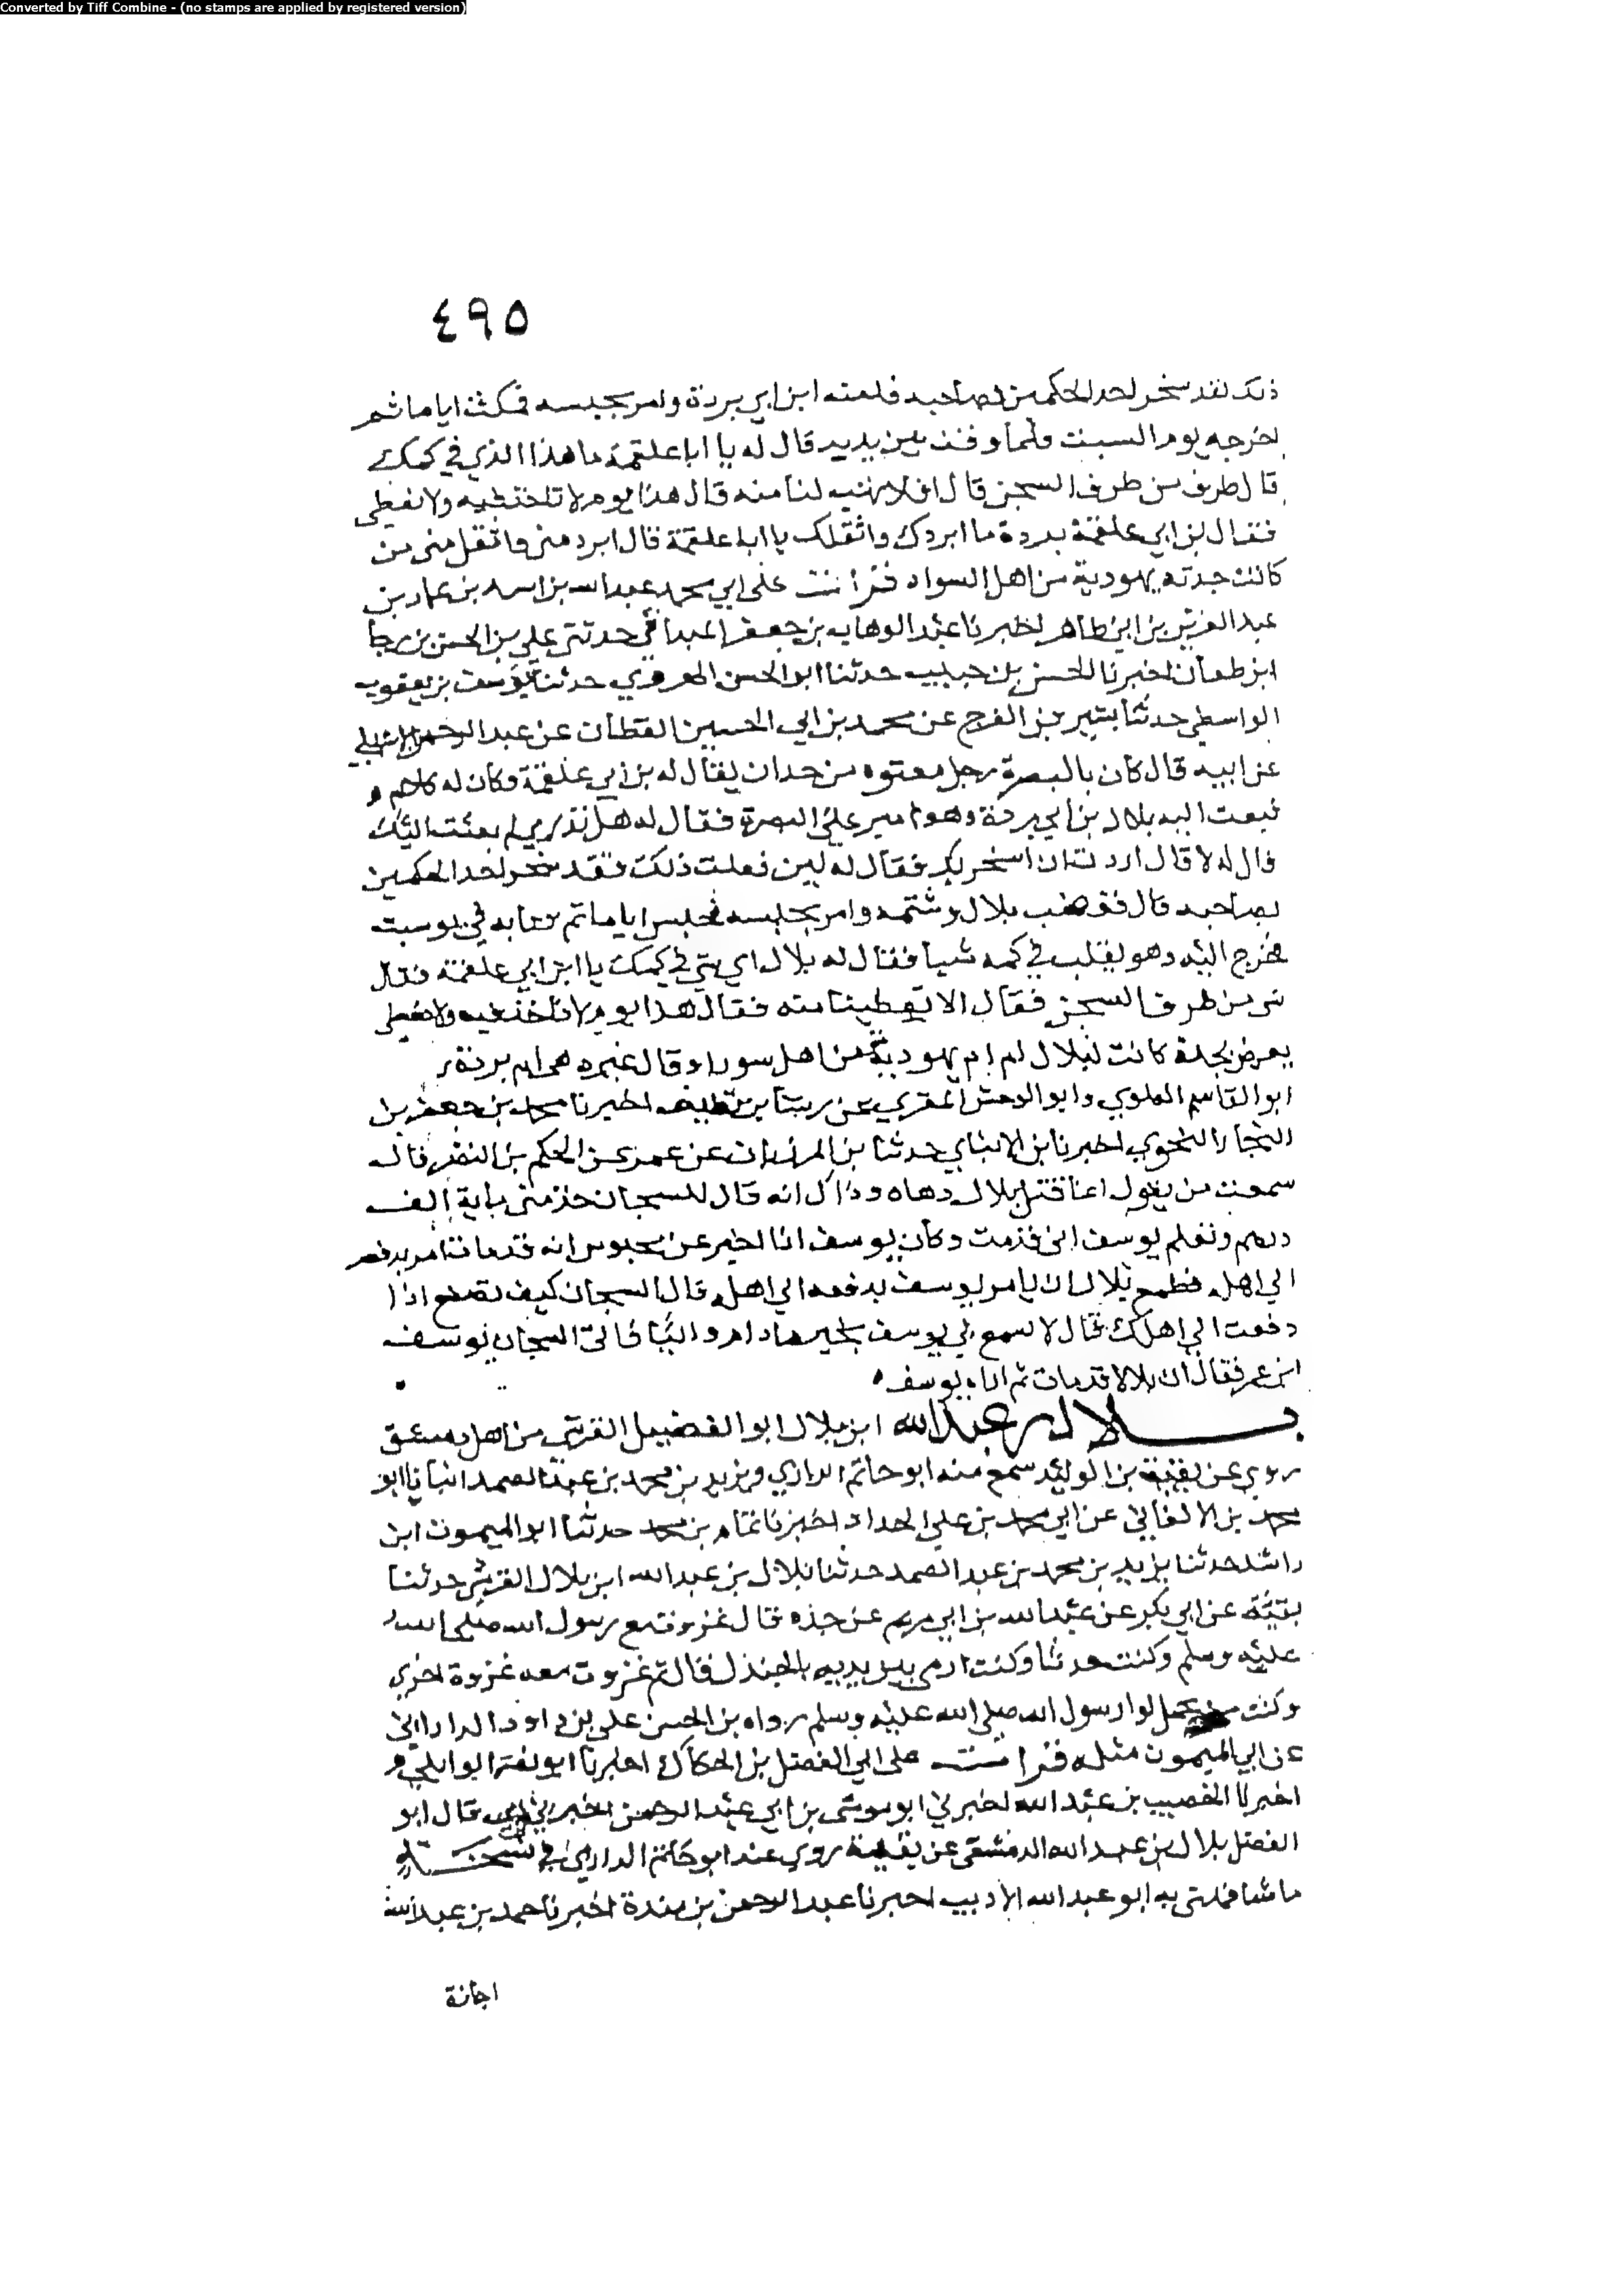 Converted by Tiff Combine - (no stamps are applied by registered version)
٤٩٥
ذلك لقد سخر احد الحكمين بصاحبه فلعنه ابن ابي بردة وامر بحبسه فمكث اياما ثم
اخرجه يوم السبت فلما وقف بين يديه قال له يا ابا علقمة ما هذا الذي في كمك
قال طرف من طرف السجن قال افلا تهب لنا منه قال هذا يوم لا تاخذ فيه ولا نعطي
فقال بن ابي علقمة بردة ما ابردك واثقلك يا ابا علقمة قال ابرد مني واثقل مني من
كانت جدته يهودية من اهل السواد قرات على ابي محمد عبد الله بن اسد بن عمار بن
عبد العزيز بن ابن طاهر اخبرنا عبد الوهاب بن جعفر الميداني حدثني علي بن الحسن بن رجا
ابن طعان اخبرنا الحسن بن حبيب حدثنا ابو الحسن المروي حدثنا يوسف بن يعقوب
الواسطي حدثنا بشير بن الفرج عن محمد بن ابي الحسين القطان عن عبد الرحمن
عن ابيه قال كان بالبصرة رجل معتوه من حدان يقال له بن ابي علقمة وكان له كلام
فبعث اليه بلال بن ابي بردة وهو امير على البصرة فقال له هل تدري لم بعثت اليك
قال له لا قال اردت ان اسخر بك فقال له لين فعلت ذلك فقد سخر احد الحكمين
بصاحبه قال فغضب بلال وشتمه وامر بحبسه فحبس اياما ثم دعا به في يوم سبت
فخرج اليه وهو يقلب في كمه شيا فقال له بلال اي شي في كمك يا ابن ابي علقمة فقال
شي من طرف السجن فقال الا تعطينا منه فقال هذا يوم لا ناخذ فيه ولا نعطي
يعرض بجدة كانت لبلال ام ام يهودية من اهل سورا وقال غيره هي ام بردة
ابو القاسم العلوي وابو الوحش المقري عن رشا بن نظيف اخبرنا محمد بن جعفر بن
النجار النحوي اخبرنا بن الانباري حدثنا بن المرزبان عن عمر عن الحكم بن النضر قال
سمعت من يقول انما قتل بلال دهاه وذاك انه قال للسجان خذ مني ماية الف
درهم وتعلم يوسف اني قدمت وكان يوسف اذا اخبر عن محبوس انه قد مات امر بدفعه
الي اهله فطمع بلال ان يامر يوسف بدفعه الي اهله قال السجان كيف تصنع اذا
دفعت الي اهلك قال لا يسمع بي يوسف بخبر ما دام واليا فاتى السجان يوسف
ابن عمر فقال ان بلالا قد مات ثم اراه يوسف
بلال بن عبد الله ابن بلال ابو الفضيل القرشي من اهل دمشق
روي عن بقية بن الوليد سمع منه ابو حاتم الرازي ويزيد بن محمد بن عبد الصمد انبانا ابو
محمد بن الاكفاني عن ابي محمد بن علي الحداد اخبرنا تمام بن محمد حدثنا ابو الميمون ابن
راشد حدثنا يزيد بن محمد بن عبد الصمد حدثنا بلال بن عبد الله ابن بلال القرشي حدثنا
بقية عن ابي بكر عن عبد الله بن ابي مريم عن جده قال غزوت مع رسول الله صلى الله
عليه وسلم وكنت حدثا وكنت ارمي بين يديه بالجندل قال ثم غزوت معه غزوة اخري
وكنت يحمل لوا رسول الله صلى الله عليه وسلم رواه بن الحسن علي بن داود الداراني
عن ابي الميمون مثله قرات على ابي الفضل بن الحكاك اخبرنا ابو نصر الوايلي
اخبرنا الخصيب بن عبد الله اخبرني ابو موسى بن ابي عبد الرحمن اخبرني ابي قال ابو
الفضل بلال بن عبد الله الدمشقي عن بقية روي عنه ابو حاتم الرازي في
ما شافهني به ابو عبد الله الاديب اخبرنا عبد الرحمن بن مندة اخبرنا حمد بن عبد الله
اجازة